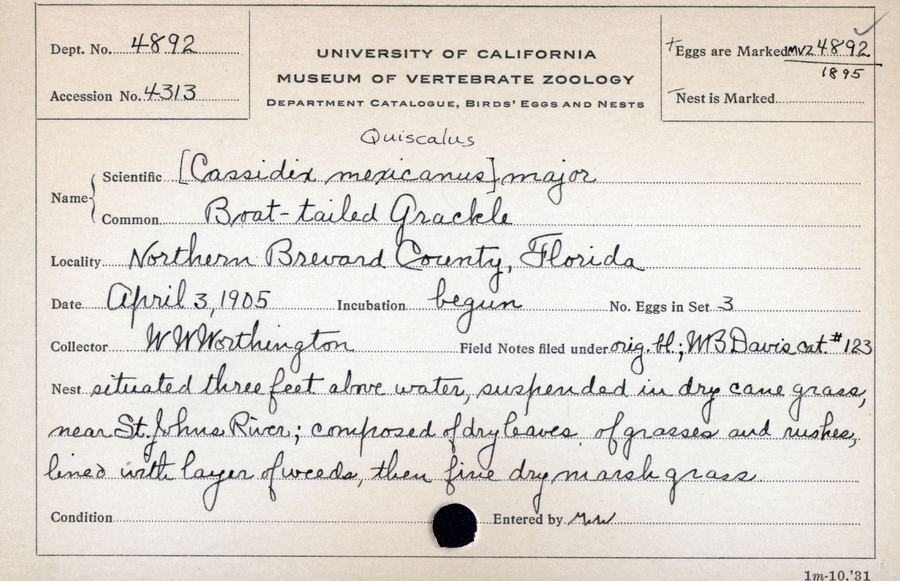 Dept. No. 4892
Accession No. 4313
UNIVERSITY OF CALIFORNIA
MUSEUM OF VERTEBRATE ZOOLOGY
DEPARTMENT CATALOGUE, BIRDS' EGGS AND NESTS
+Eggs are Marked MVZ 4892
1895
-Nest is Marked
Quiscalus
Name
Scientific [Cassidix mexicanus] major
Common Boat-tailed Grackle
Locality Northern Brevard County, Florida
Date April 3, 1905 Incubation begun No. Eggs in Set 3
Collector W W Worthington Field Notes filed under orig. bl; WB Davis cat. #123
Nest situated three feet above water, suspended in dry cane grass,
near St. Johns River; composed of dry leaves of grasses and rushes,
lined with layer of weeds, then fine dry marsh grass
Condition Entered by
1m-10,'31